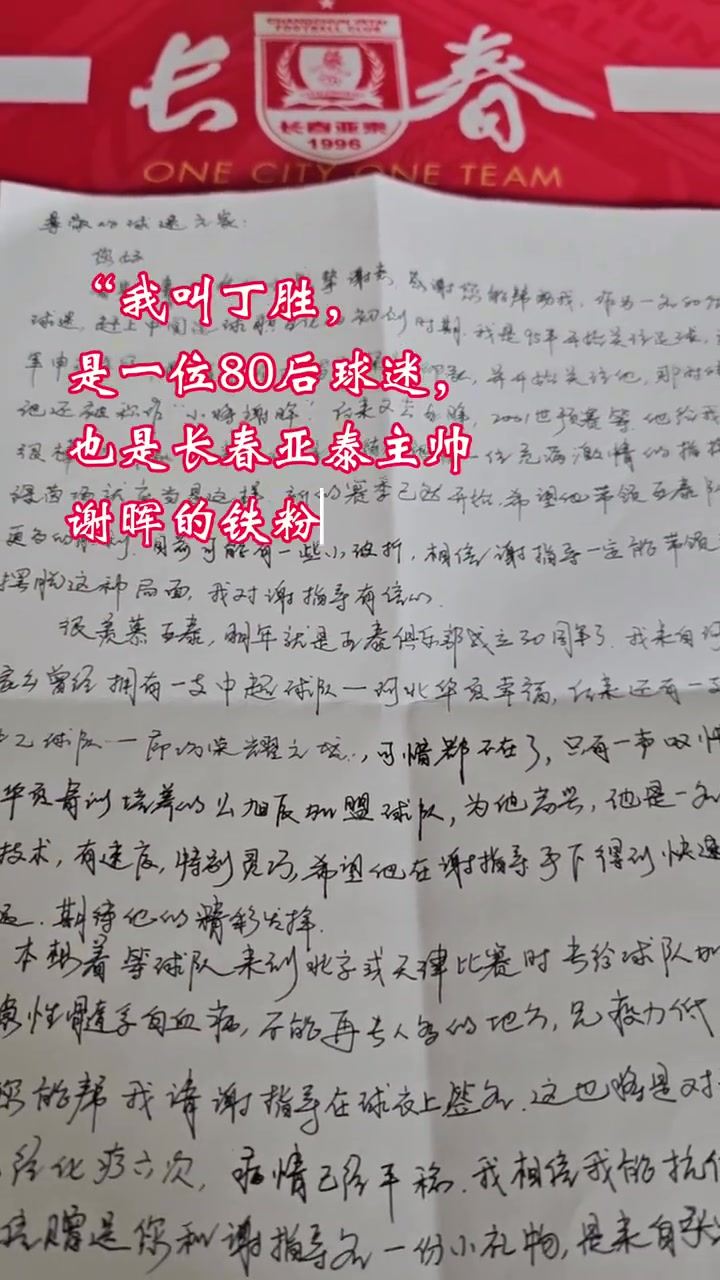 CHANGCHUN YATAI
FOOTBALL CLUB
长春
长春亚泰
1996
ONE CITY ONE TEAM
尊敬的球迷之家：
您好
谢您的帮助我，作为一名80
球迷，赶上中国足球职业化的初创时期，我是95年开始关注足球，
并开始关注他，那时
他还被称作“小将谢晖”后来又去 2001世预赛等，他给我
很 一位充满激情的指挥
新的赛季已经开始，希望他带领亚泰队
更多的胜利，目前可能有一些小波折，相信谢指导一定能带领
摆脱这种局面，我对谢指导有信心。
很羡慕亚泰，明年就是亚泰俱乐部成立30周年了，我来自河
家乡曾经拥有一支中超球队一河北华夏幸福，后来还有一支
乙球队一廊坊荣耀之城..，可惜都不在了，只有一声叹
华夏青训培养的 加盟球队，为他高兴，他是一名
技术，有速度，特别灵巧，希望他在谢指导手下得到快速
期待他的精彩发挥.
本想着等球队来到北京或天津比赛时去给球队加
急性髓系白血病，不能再去人多的地方，免疫力低
您能帮我请谢指导在球衣上签名，这也将是对
经化疗六次，病情已经平稳.我相信我能抗
信赠是你和谢指导各一份小礼物，是来自
“我叫丁胜，
是一位80后球迷，
也是长春亚泰主帅
谢晖的铁粉